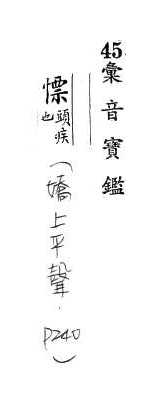 45彙音寶鑑
憡頭疾也
(嬌上平聲.P240)